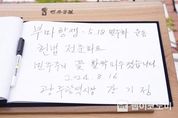 부마항쟁·5.18 민주화 운동
헌법 전문으로
민주주의 꽃 활짝 피우겠습니다
2024. 8. 16
광주광역시장 강기정